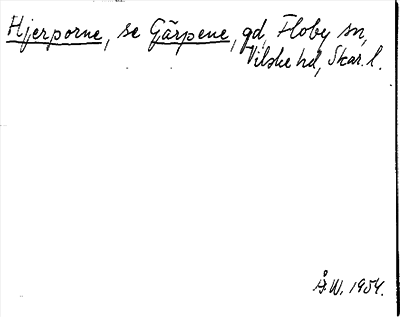 Hjerporne, se Gärpene, gd, Floby sn,
Vilske hd, Skar. l.
Å W. 1954.